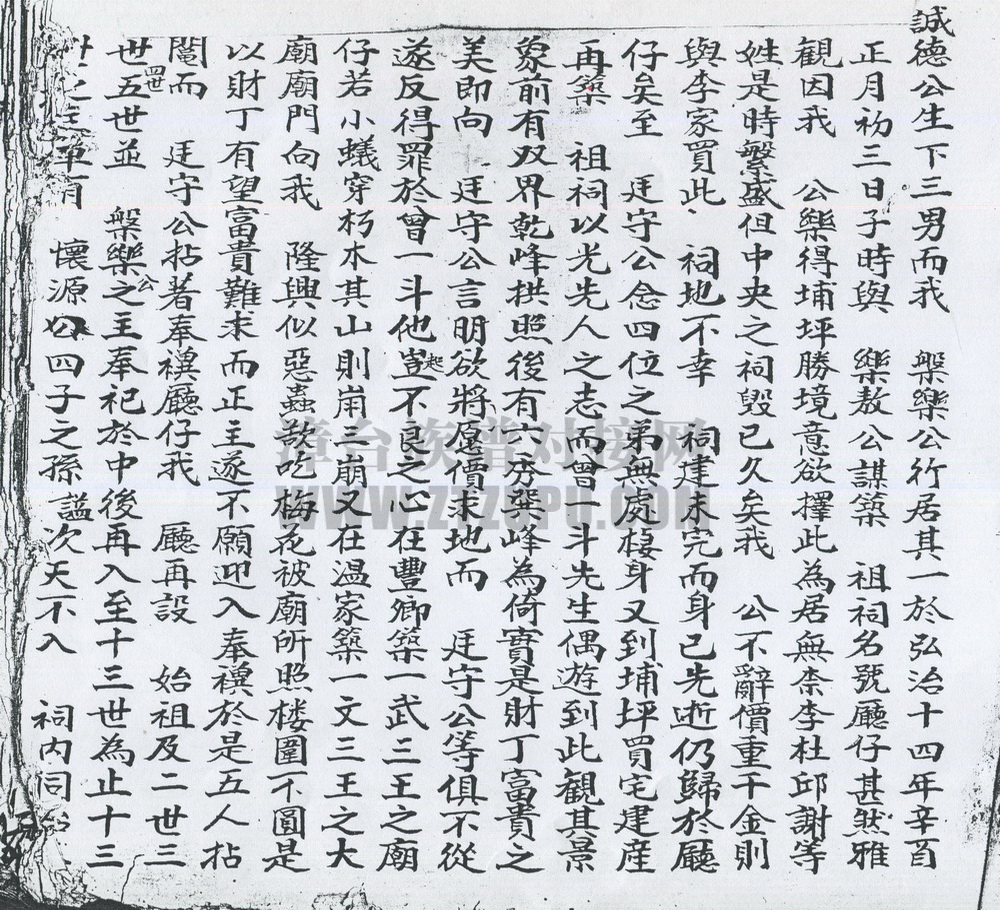 誠德公生下三男而我 槃樂公行居其一於弘治十四年辛酉
正月初三日子時與 樂敖公謀築 祖祠名號廳仔甚然雅
觀因我 公樂得埔坪勝境意欲擇此為居無柰李杜邱謝等
姓是時繁盛但中央之祠毀已久矣我 公不辭價重千金則
與李家買此 祠地不幸 祠建未完而身已先逝仍歸於廳
仔矣至 廷守公念四位之弟無處棲身又到埔坪買宅建産
再築 祖祠以光先人之志而曾一斗先生偶遊到此觀其景
象前有双界乾峰拱照後有六秀巽峰為倚實是財丁富貴之
美即向 廷守公言明欲將愿價求地而 廷守公等俱不從
遂反得罪於曾一斗他起不良之心在豐鄉築一武三王之廟
仔若小蟻穿朽木其山則崩三崩又在溫家築一文三王之大
廟廟門向我 隆興似惡蟲欲吃梅花被廟所照楼圍不圓是
以財丁有望富貴難求而正主遂不願迎入奉禩於是五人拈
鬮而 廷守公拈著奉禩廳仔我 廳再設 始祖及二世三
世四世五世並 槃樂公之主奉祀於中後再入至十三世為止十三
懷源公四子之孫謚次天不入 祠内同
漳台族谱对接网
WWW.ZTZUPU.COM